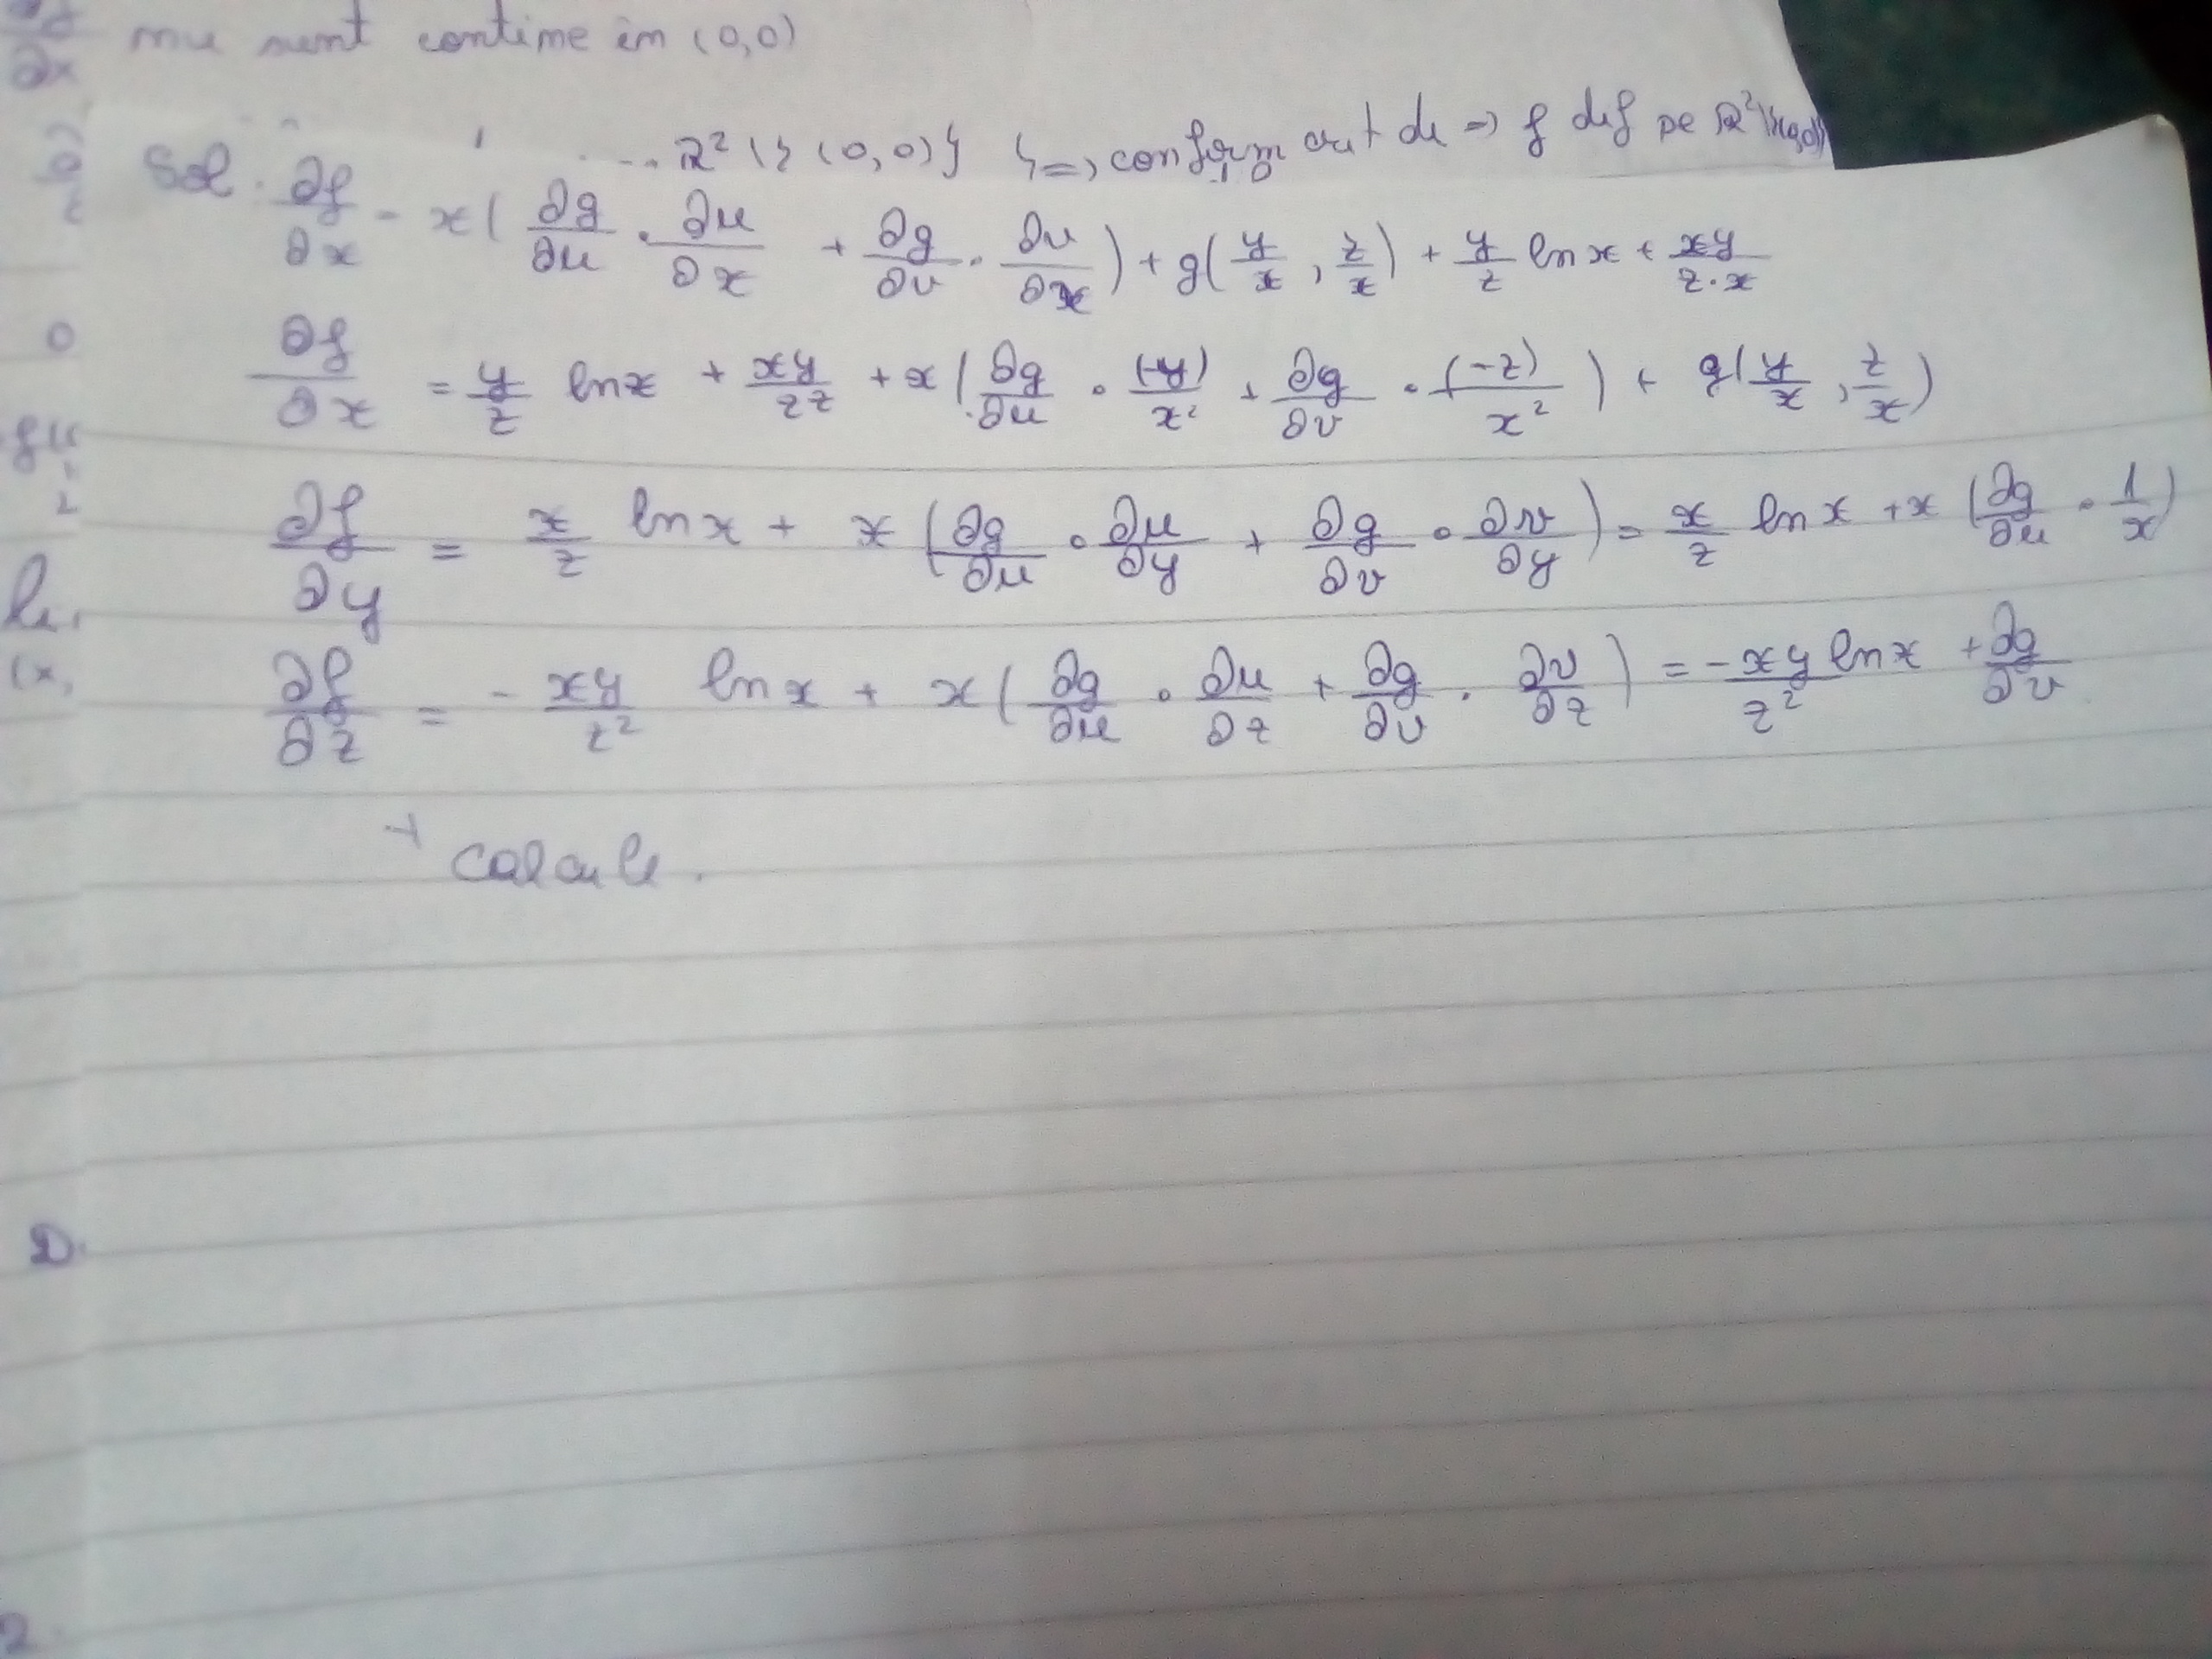 nu sunt continue în (0,0)
... R² \ { (0,0) } } => conform crit de => f dif pe R² \ {(0,0)}
Sol. ∂f/∂x = x( ∂g/∂u · ∂u/∂x + ∂g/∂v · ∂v/∂x ) + g( y/x , z/x ) + y/z ln x + xy/z·x
∂f/∂x = y/z ln x + xy/zz + x( ∂g/∂u · (-y)/x² + ∂g/∂v · (-z)/x² ) + g( y/x , z/x )
∂f/∂y = x/z ln x + x ( ∂g/∂u · ∂u/∂y + ∂g/∂v · ∂v/∂y ) = x/z ln x + x ( ∂g/∂u · 1/x )
∂f/∂z = - xy/z² ln x + x ( ∂g/∂u · ∂u/∂z + ∂g/∂v · ∂v/∂z ) = -xy ln x/z² + ∂g/∂v
+ calcule.
D.
2.